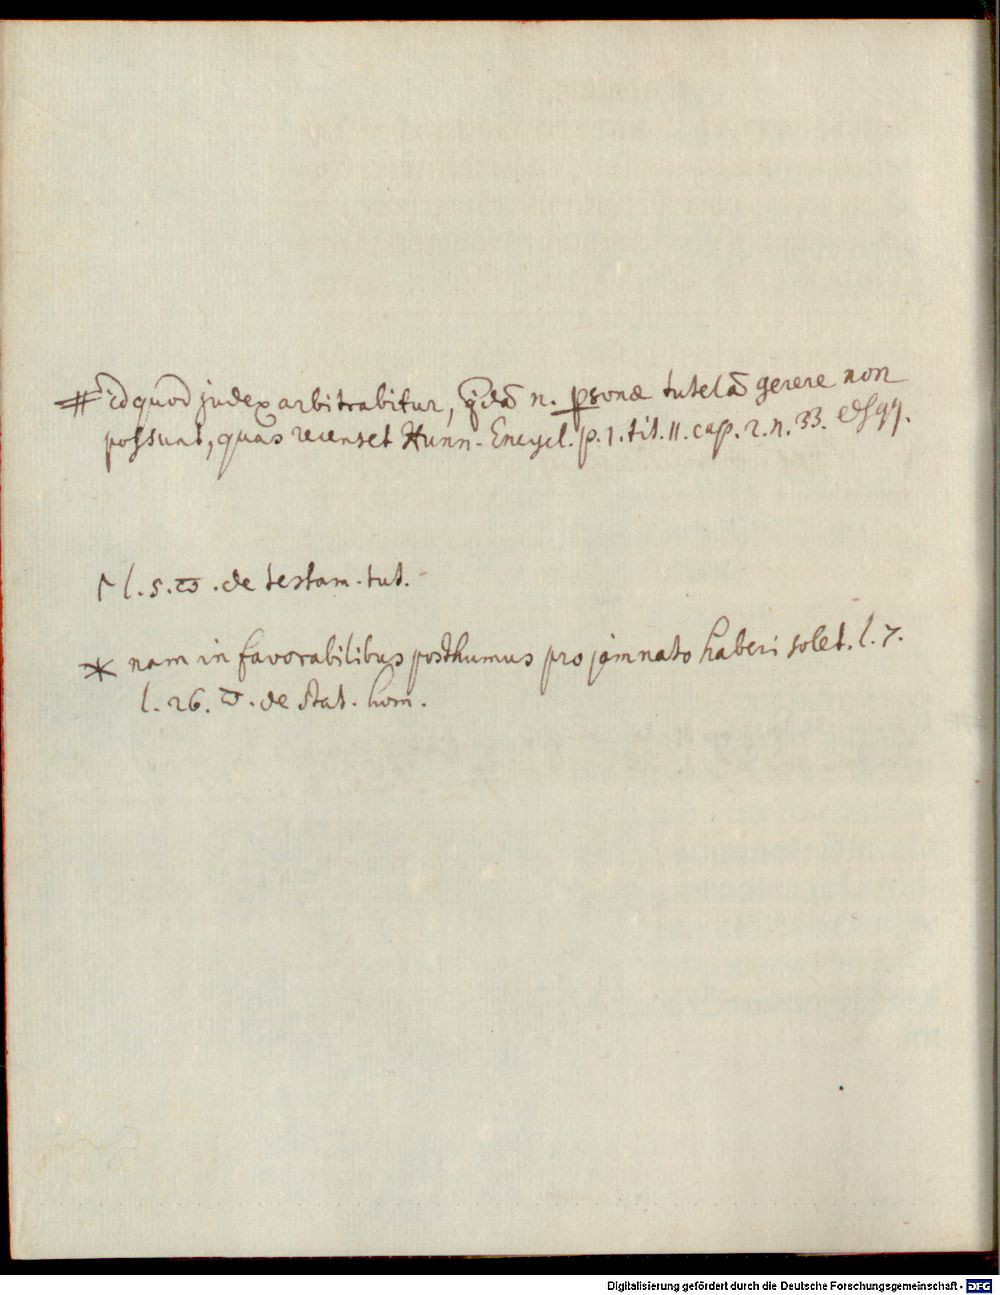 # id quod judex arbitrabitur, qdā n. psonæ tutelā gerere non
possunt, quas recenset Hunn. Encycl. p. 1. tit. 11. cap. 2. n. 33. & sqq.
Γ l. 5. ϖ. de testam. tut.
* nam in favorabilibus posthumus pro jam nato haberi solet. l. 7.
l. 26. ϖ. de stat. hom.
Digitalisierung gefördert durch die Deutsche Forschungsgemeinschaft - DFG